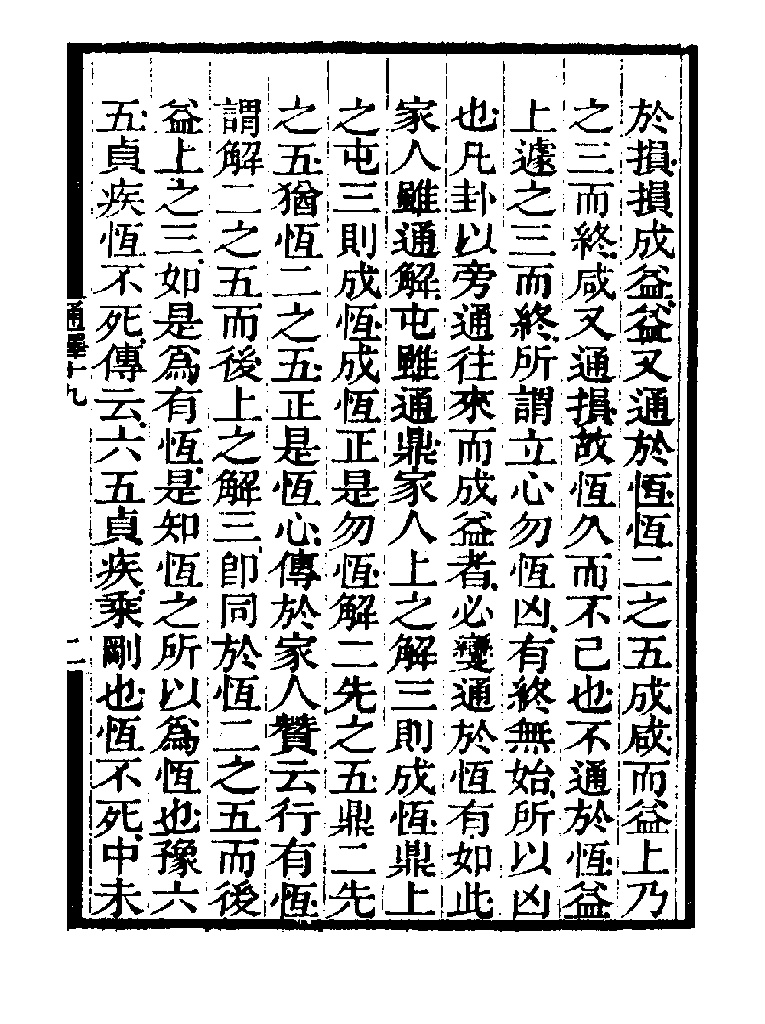 於損損成益益又通於恆恆二之五成咸而益上乃
之三而終咸又通損故恆久而不已也不通於恆益
上遽之三而終所謂立心勿恆凶有終無始所以凶
也凡卦以旁通往來而成益者必變通於恆有如此
家人雖通解屯雖通鼎家人上之解三則成恆鼎上
之屯三則成恆成恆正是勿恆解二先之五鼎二先
之五猶恆二之五正是恆心傳於家人贊云行有恆
謂解二之五而後上之解三卽同於恆二之五而後
益上之三如是爲有恆是知恆之所以爲恆也豫六
五貞疾恆不死傳云六五貞疾乘剛也恆不死中未
通釋十九
二